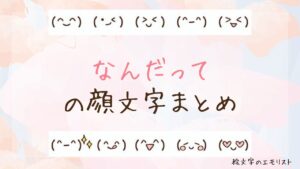 (^‿^) (•ᴗ<) (>ᴗ<) (^-^) (>ᴗ<)
なんだって
の顔文字まとめ
(^-^)✨ (^ᴗ^) (^o^) (◡‿◡) (♡ᴗ♡)
絵文字のエモリスト